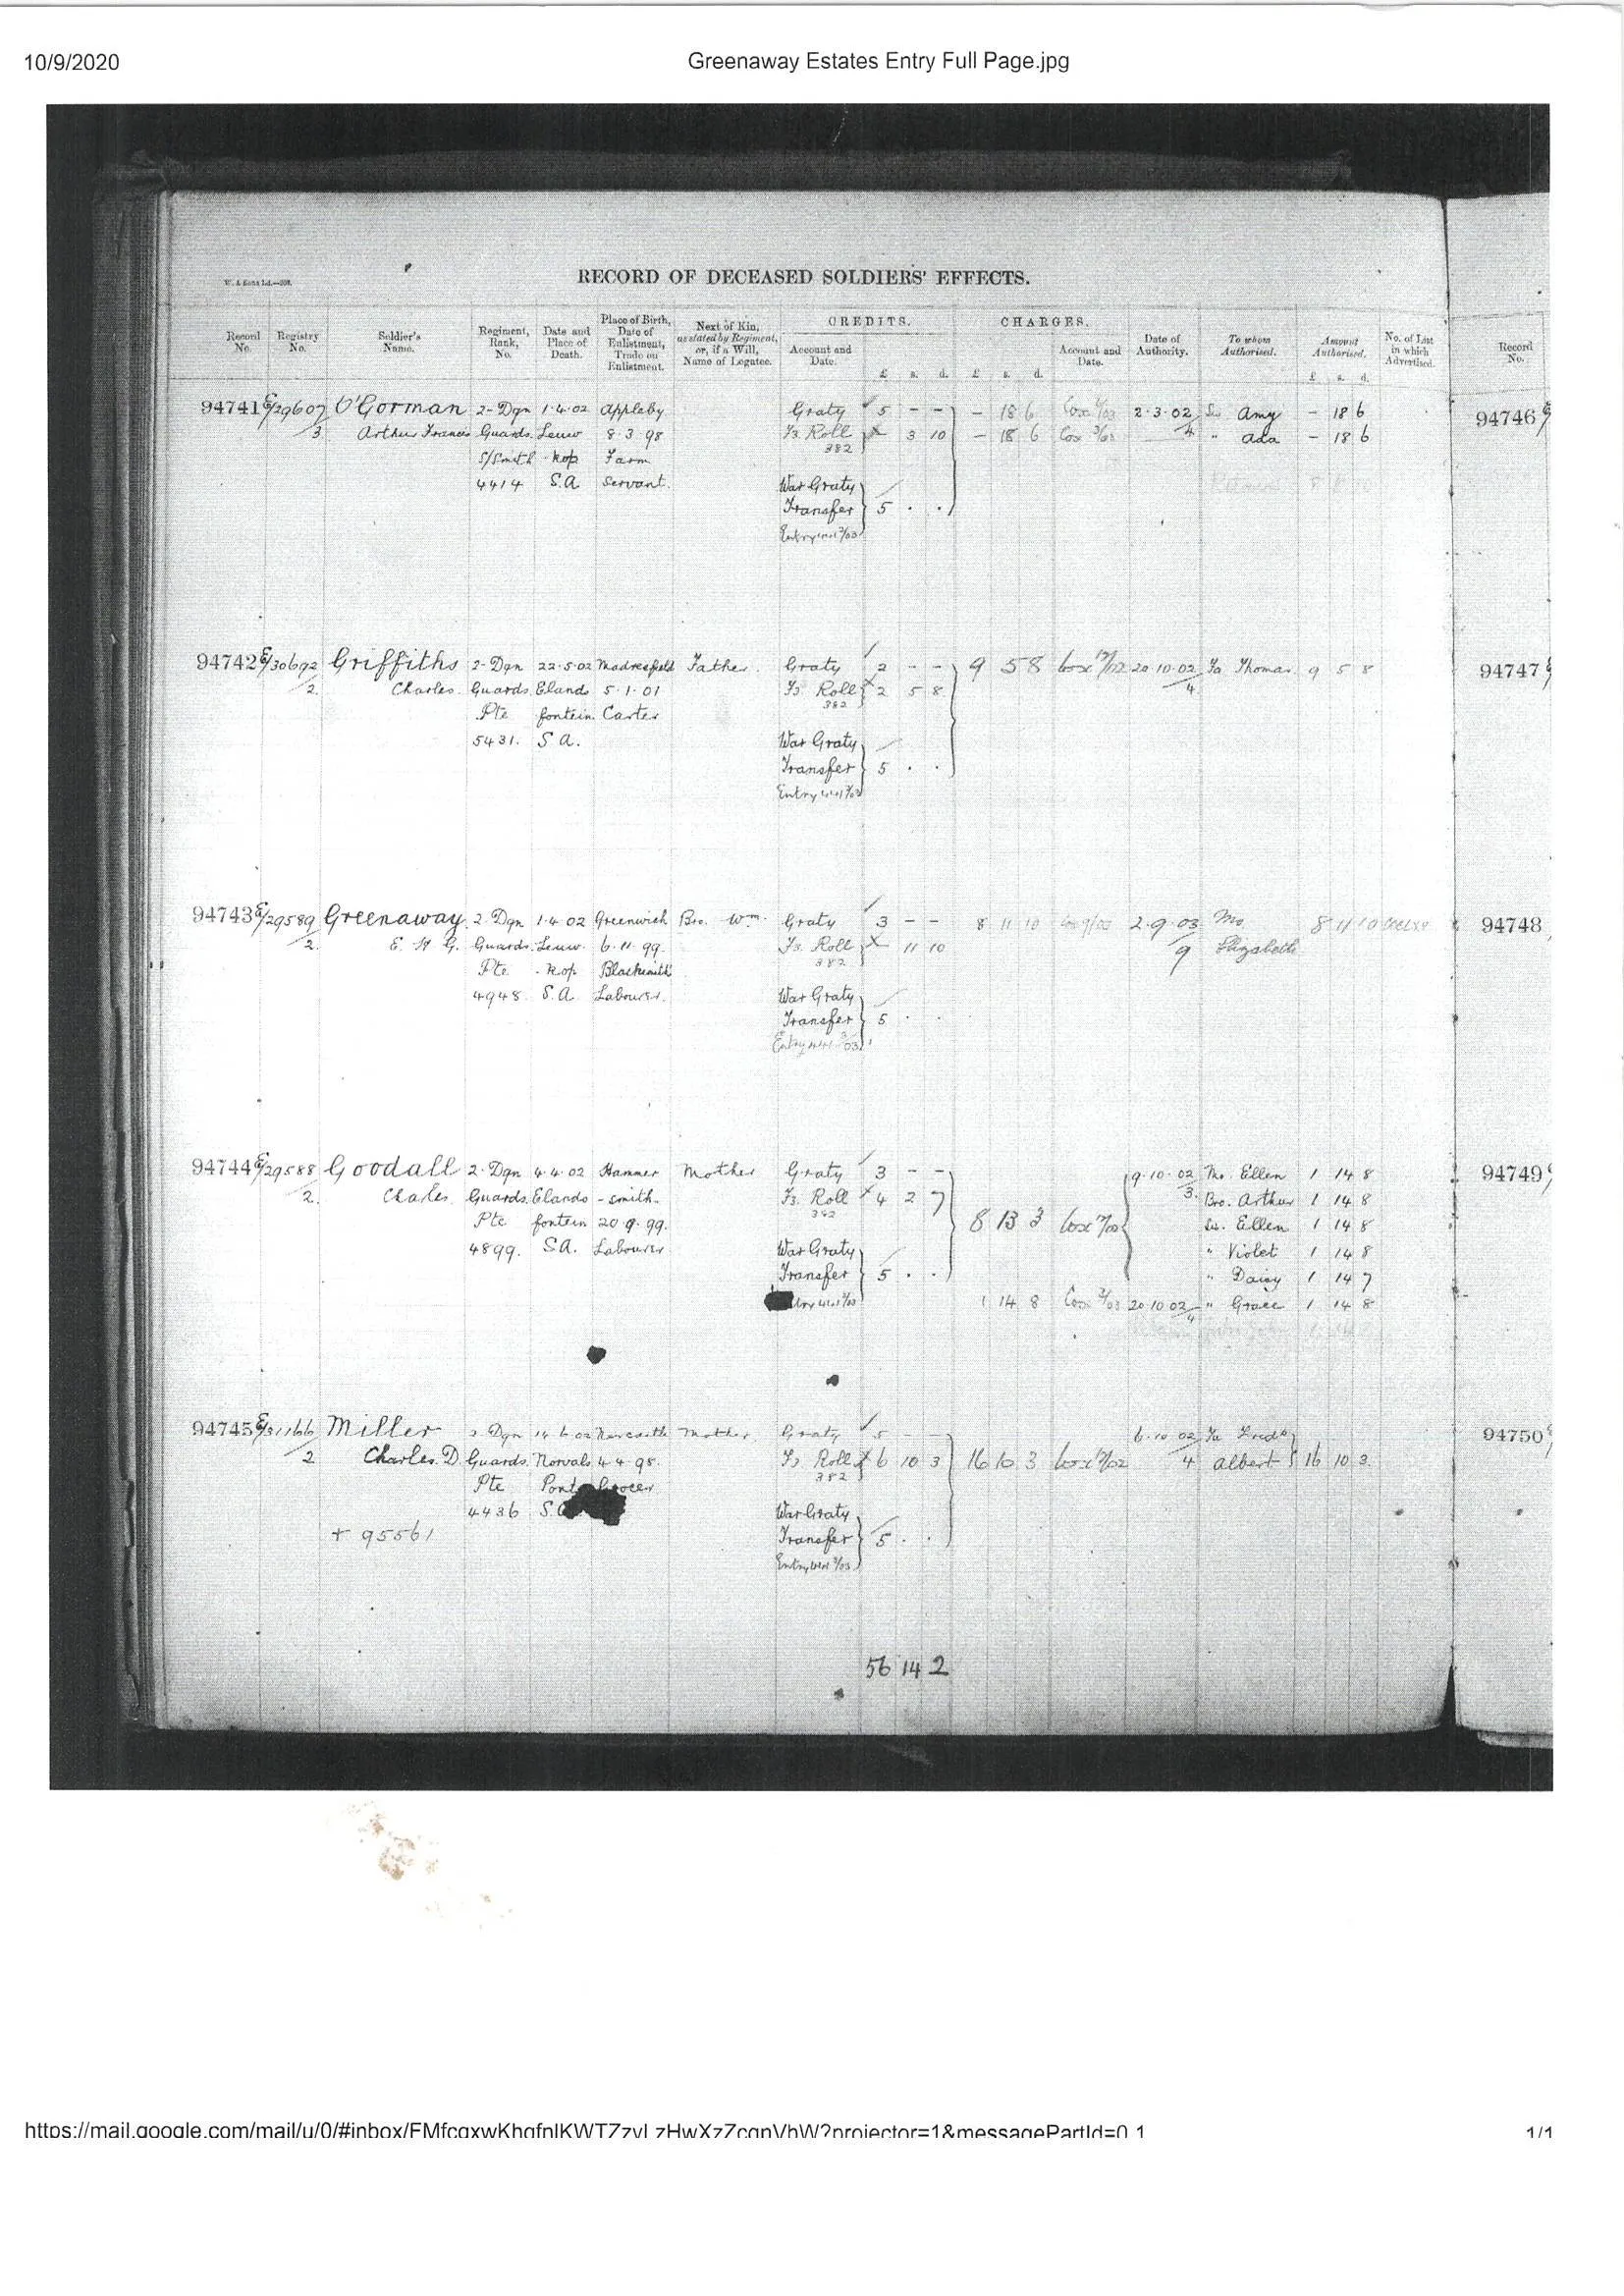 10/9/2020
Greenaway Estates Entry Full Page.jpg
RECORD OF DECEASED SOLDIERS' EFFECTS.
W. & Sons Ld.
Record No.
Registry No.
Soldier's Name.
Regiment, Rank, No.
Date and Place of Death.
Place of Birth, Date of Enlistment, Trade on Enlistment.
Next of Kin, as stated by Regiment, or, if a Will, Name of Legatee.
CREDITS.
Account and Date.
£ s. d.
CHARGES.
£ s. d.
Account and Date.
Date of Authority.
To whom Authorised.
Amount Authorised.
£ s. d.
No. of List in which Advertised.
Record No.
94741 E/29607 O'Gorman 2-Dgn 1.4.02 Appleby Graty 5 - - - 18 6 Cox 2.3.02 Sis Amy - 18 6 94746
3 Arthur Francis Guards Leeuw 8.3.98 Fs. Roll 3 10 - 18 6 Cox 3/03 4 " Ada - 18 6
S/Smith kop Farm 382
4414 S.A Servant War Graty
Transfer 5 . .
Entry
94742 E/30692 Griffiths 2-Dgn 22.5.02 Madresfield Father. Graty 2 - - 9 5 8 Cox 20.10.02 Fa Thomas 9 5 8 94747
2. Charles. Guards. Elands 5.1.01 Fs. Roll 2 5 8 4
Pte fontein Carter 382
5431. S A. War Graty
Transfer 5 . .
Entry
94743 E/29589 Greenaway 2.Dgn 1.4.02 Greenwich Bro. Wm. Graty 3 - - 8 11 10 Cox 9/03 2.9.03 Mo 8 11 10 94748
2. E. H G. Guards. Leeuw. 6.11.99. Fs. Roll 11 10 9 Elizabeth
Pte kop Blacksmith's 382
4948. S.A. Labourer. War Graty
Transfer 5 . .
Entry
94744 E/29588 Goodall 2.Dgn 4.4.02 Hammer Mother Graty 3 - - 9.10.02 Mo. Ellen 1 14 8 94749
2. Charles. Guards. Elands -smith. Fs. Roll 4 2 7 3. Bro. Arthur 1 14 8
Pte fontein 20.9.99. 382 8 13 3 Cox Sis. Ellen 1 14 8
4899. S.A. Labourer War Graty " Violet 1 14 8
Transfer 5 . . " Daisy 1 14 7
1 14 8 Cox 2/03 20.10.02 " Grace 1 14 8
4
94745 E/31166 Miller 2 Dgn 14 6 02 Newcastle Mother Graty 5 - - 6.10.02 Fa Fredk 94750
2 Charles. D. Guards. Norvals 4.4.98. Fs Roll 6 10 3 16 10 3 Cox 4 Albert 16 10 3
Pte Pont Grocer 382
4436 S.A War Graty
+ 95561 Transfer 5 . .
Entry
56 14 2
https://mail.google.com/mail/u/0/#inbox/FMfcgxwKhqfnlKWTZzvLzHwXzZcqnVhW?projector=1&messagePartId=0.1
1/1